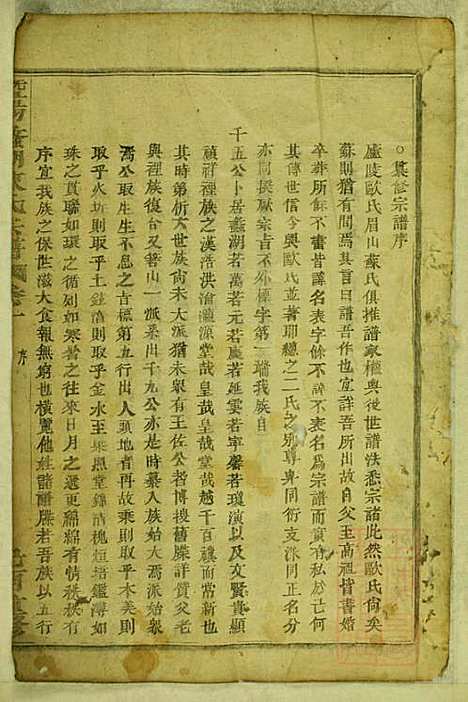 ○纂修宗譜序
廬陵歐氏眉山蘇氏俱推譜家權輿後世譜法悉宗諸此然歐氏尙矣
蘇則猶有間焉其言曰譜吾作也宜詳吾所出故自父至高祖皆書婚
卒葬所餘不書皆諱名表字餘不諱不表名爲宗譜而實有私於己亡
其傳世信今與歐氏並著珊總之二氏之例尊卑同衍支派同正名分
亦同揆厥宗旨不外標字第一端我族自
千五公卜居蠡湖若萬若元若慶若延雲若宰馨若瓊演以及文賢貴顯
禎祥裡族之漢浩洪滄灝源堂哉皇哉堂哉越千百禩而常新也
其時第析大世族尙未大派猶未衆有王佐公者博搜舊牒詳質父老
與裡族復合又箬山一派系出千九公亦是時彙入族始大焉派始衆
焉公取生生不息之吉標第五行出人頭地者再故乘則取乎木美則
取乎火圻則取乎土鉦濱則取乎金水王杲照堂鋒清槐烜培鑑溥如
珠之貫聯如環之循列如寒暑之往來日月之遞更綿綿有情秩秩有
序宜我族之保世滋大食報無窮也橫覽他姓諸譜牒者吾族以五行
序